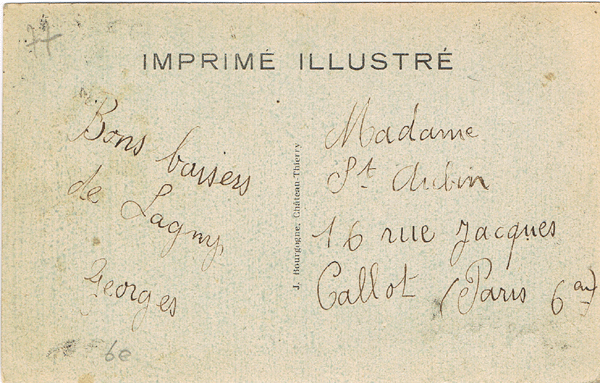 77
IMPRIMÉ ILLUSTRÉ
Bons baisers
de Lagny
Georges
J. Bourgogne, Château-Thierry
Madame
St Aubin
16 rue Jacques
Callot (Paris 6
6e